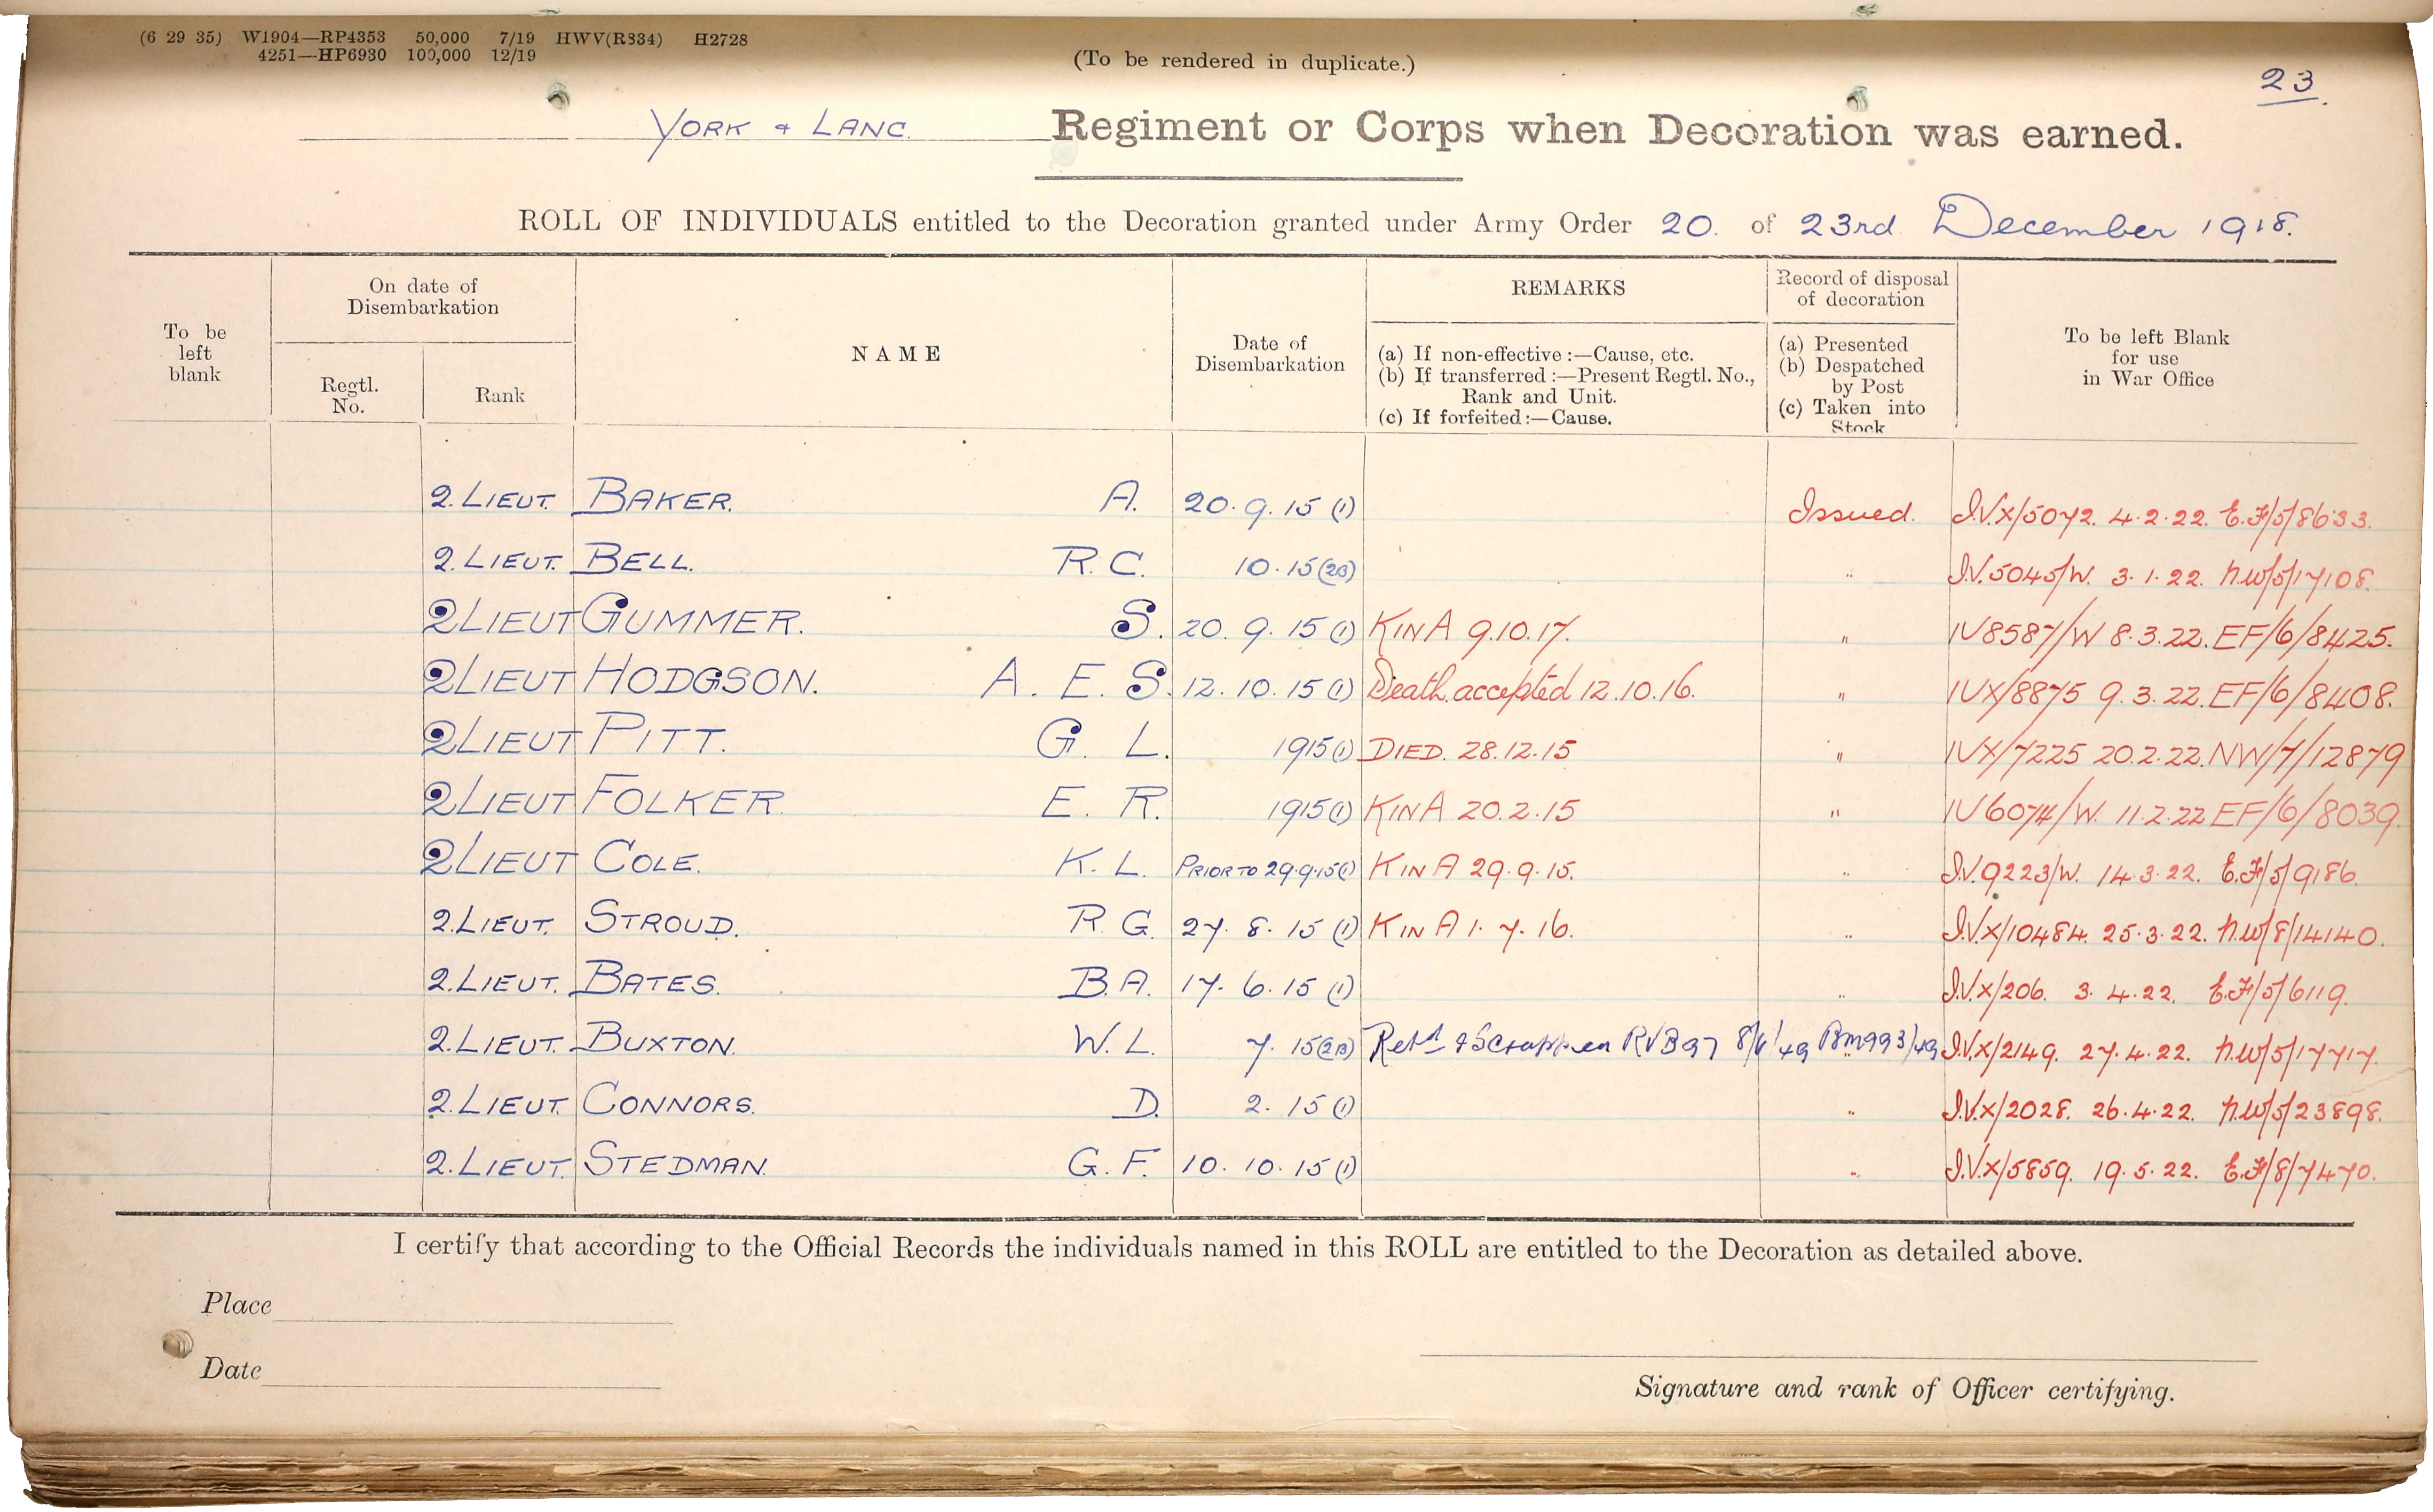 (6 29 35) W1904—RP4353 50,000 7/19 HWV(R334) H2728
4251—HP6930 100,000 12/19
(To be rendered in duplicate.)
23.
YORK & LANC. Regiment or Corps when Decoration was earned.
ROLL OF INDIVIDUALS entitled to the Decoration granted under Army Order 20. of 23rd December 1918.
To be left blank
On date of Disembarkation
Regtl. No.
Rank
NAME
Date of Disembarkation
REMARKS
(a) If non-effective :—Cause, etc.
(b) If transferred :—Present Regtl. No., Rank and Unit.
(c) If forfeited :—Cause.
Record of disposal of decoration
(a) Presented
(b) Despatched by Post
(c) Taken into Stock
To be left Blank for use in War Office
2.LIEUT. BAKER. A. 20.9.15 (1) Issued. I.V.X/5072. 4.2.22. E.F/5/8633.
2.LIEUT. BELL. R.C. 10.15(2B) " I.V.5045/W. 3.1.22. N.W/5/17108.
2LIEUT GUMMER. S. 20.9.15(1) K IN A 9.10.17. " IV8587/W 8.3.22. EF/6/8425.
2LIEUT HODGSON. A. E. S. 12.10.15(1) Death accepted 12.10.16. " IVX/8875 9.3.22. EF/6/8408.
2LIEUT PITT. G. L. 1915(1) DIED. 28.12.15 " IVX/7225 20.2.22. NW/7/12879
2LIEUT FOLKER E. R. 1915(1) K IN A 20.2.15 " IV6074/W. 11.2.22 EF/6/8039.
2LIEUT COLE. K. L. PRIOR TO 29.9.15(1) K IN A 29.9.15. " I.V.9223/W. 14.3.22. E.F/5/9186.
2.LIEUT. STROUD. R.G. 27.8.15(1) K IN A 1.7.16. " I.V.X/10484. 25.3.22. N.W/8/14140.
2.LIEUT. BATES. B.A. 17.6.15(1) " I.V.X/206. 3.4.22. E.F/5/6119.
2.LIEUT. BUXTON. W.L. 7.15(2B) Retd & Scrapped RVB97 49 993/49 " I.V.X/2149. 27.4.22. N.W/5/17717.
2.LIEUT. CONNORS. D. 2.15(1) " I.V.X/2028. 26.4.22. N.W/5/23898.
2.LIEUT. STEDMAN. G.F. 10.10.15(1) " I.V.X/5859. 19.5.22. E.F/8/7470.
I certify that according to the Official Records the individuals named in this ROLL are entitled to the Decoration as detailed above.
Place
Date
Signature and rank of Officer certifying.